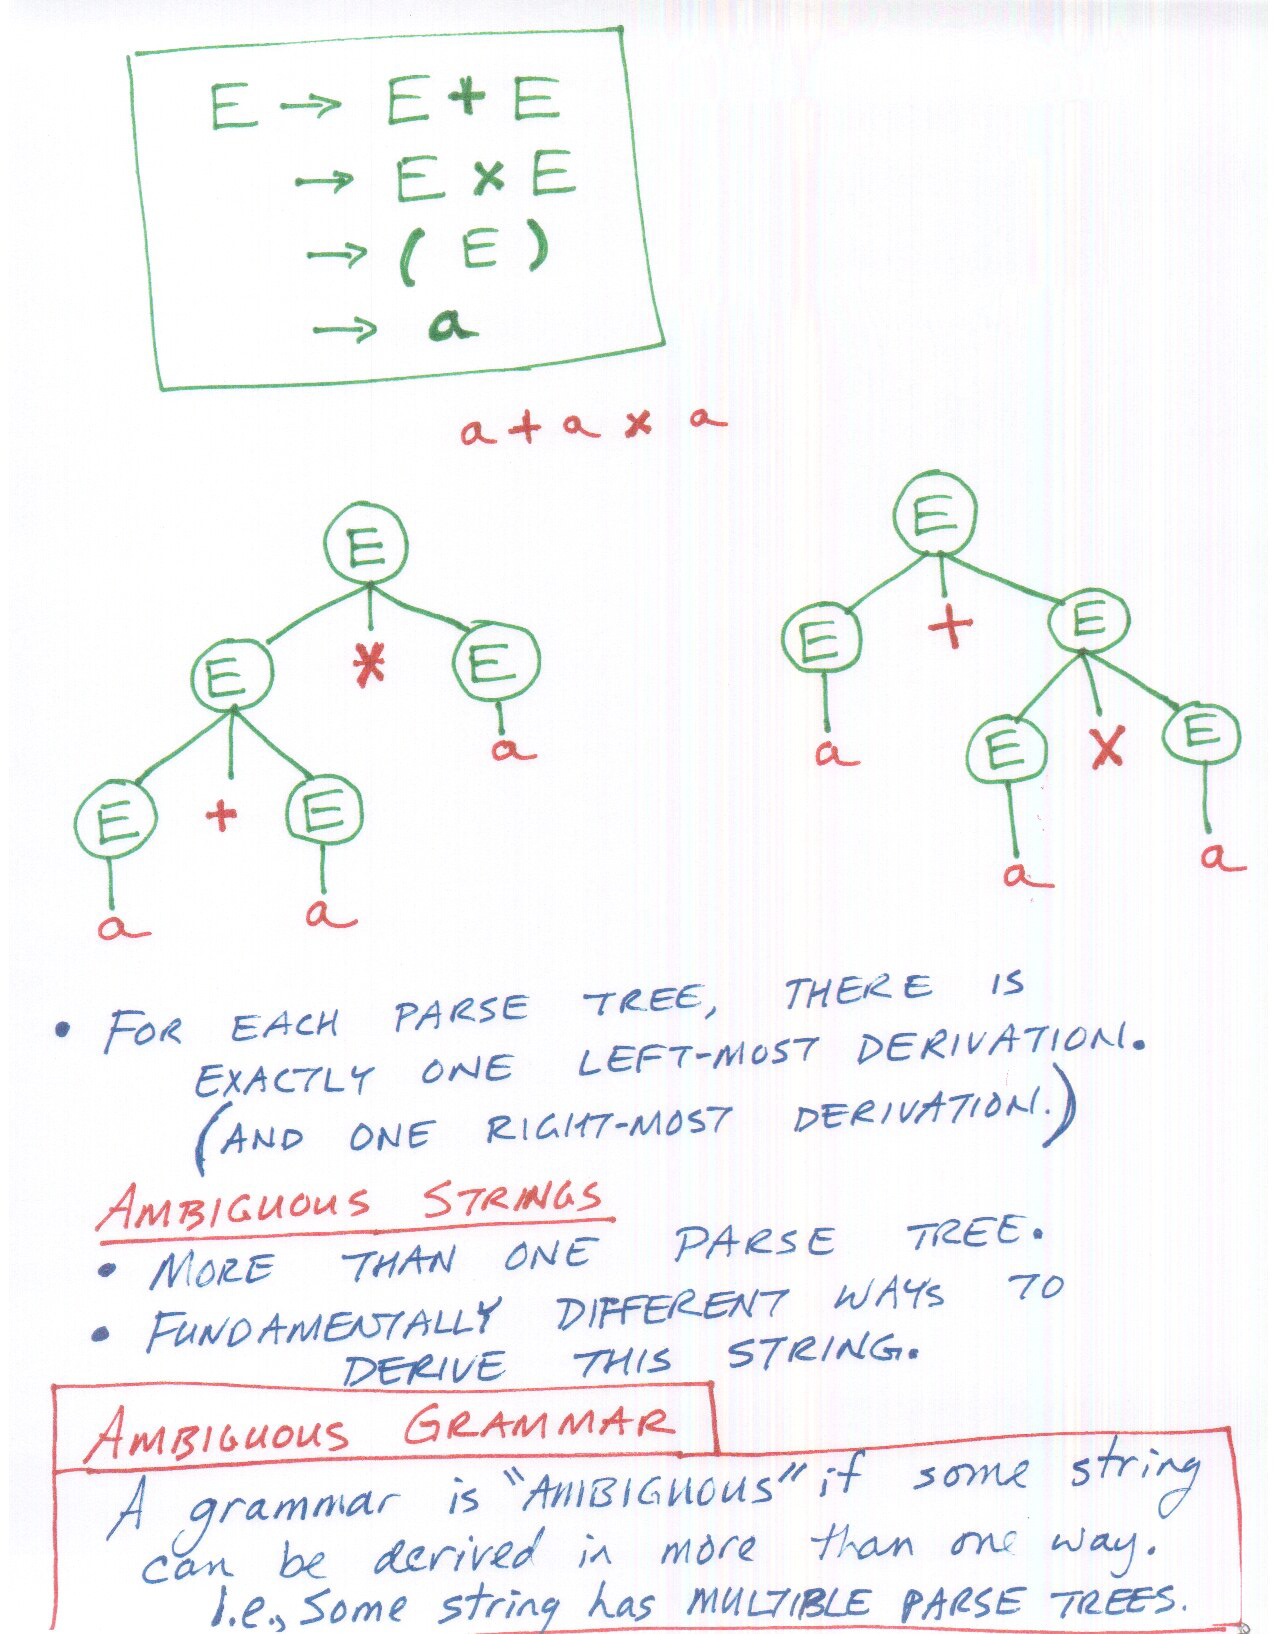 E → E + E
→ E × E
→ ( E )
→ a
a + a × a
E
E * E
a
E + E
a a
E
E + E
a
E × E
a a
• FOR EACH PARSE TREE, THERE IS
EXACTLY ONE LEFT-MOST DERIVATION.
(AND ONE RIGHT-MOST DERIVATION.)
AMBIGUOUS STRINGS
• MORE THAN ONE PARSE TREE.
• FUNDAMENTALLY DIFFERENT WAYS TO
DERIVE THIS STRING.
AMBIGUOUS GRAMMAR
A grammar is "AMBIGUOUS" if some string
can be derived in more than one way.
I.e., Some string has MULTIPLE PARSE TREES.